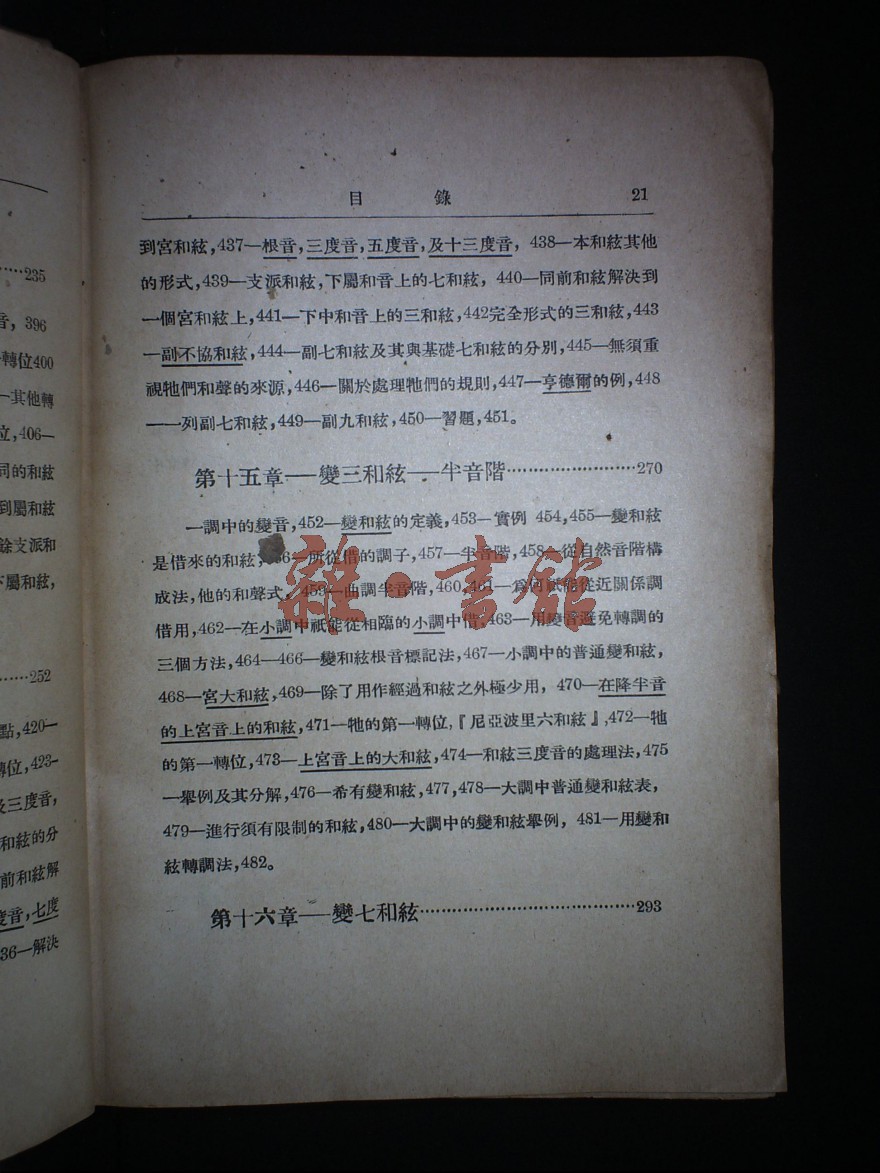 …235
音, 396
轉位400
—其他轉
位,406—
同的和絃
到屬和絃
餘支派和
下屬和絃,
…252
點,420—
轉位,423—
及三度音,
和絃的分
前和絃解
度音,七度
36—解決
目 錄 21
到宮和絃,437—根音,三度音,五度音,及十三度音, 438—本和絃其他
的形式,439—支派和絃,下屬和音上的七和絃, 440—同前和絃解決到
一個宮和絃上,441—下中和音上的三和絃,442完全形式的三和絃,443
—副不協和絃,444—副七和絃及其與基礎七和絃的分別,445—無須重
視牠們和聲的來源,446—關於處理牠們的規則,447—亨德爾的例,448
—一列副七和絃,449—副九和絃,450—習題,451。
第十五章——變三和絃——半音階…270
一調中的變音,452—變和絃的定義,453—實例 454,455—變和絃
是借來的和絃,456—所從借的調子,457—半音階,458—從自然音階構
成法,他的和聲式,459—曲調半音階,460,461—爲何祇能從近關係調
借用,462—在小調中祇能從相臨的小調中借,463—用變音避免轉調的
三個方法,464—466—變和絃根音標記法,467—小調中的普通變和絃,
468—宮大和絃,469—除了用作經過和絃之外極少用, 470—在降半音
的上宮音上的和絃,471—牠的第一轉位,『尼亞波里六和絃』,472—牠
的第一轉位,473—上宮音上的大和絃,474—和絃三度音的處理法,475
—舉例及其分解,476—希有變和絃,477,478—大調中普通變和絃表,
479—進行須有限制的和絃,480—大調中的變和絃舉例, 481—用變和
絃轉調法,482。
第十六章——變七和絃…293
雜·書館